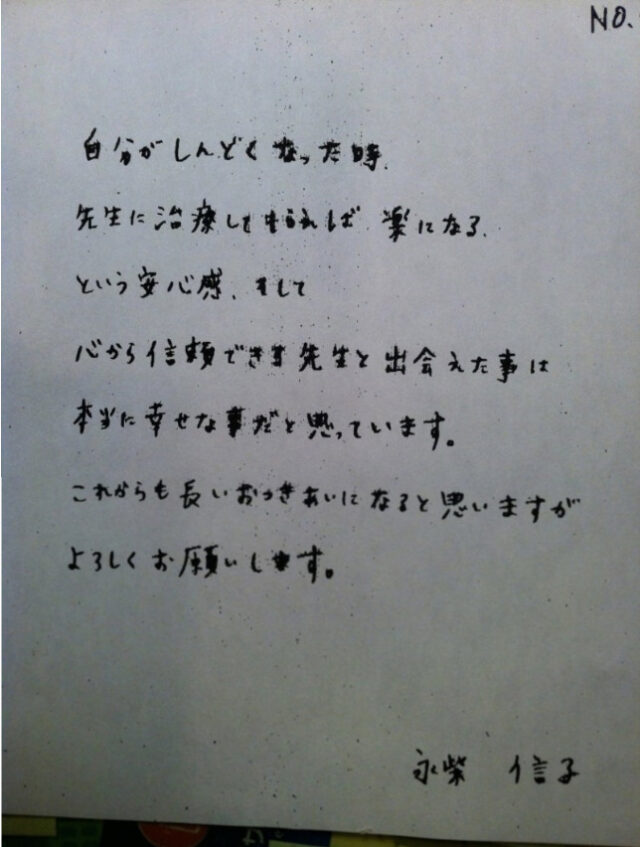 NO.
自分がしんどくなった時、
先生に治療してもらえれば 楽になる、
という安心感、そして
心から信頼できる先生と出会えた事は
本当に幸せな事だと思っています。
これからも長いおつきあいになると思いますが
よろしくお願いします。
永柴 信子